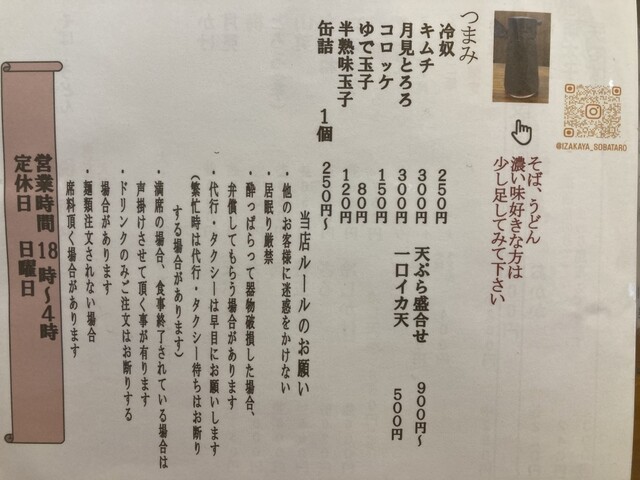 @IZAKAYA_SOBATARO
そば、うどん
濃い味好きな方は
少し足してみて下さい
つまみ
冷奴 250円
キムチ 300円
月見とろろ 300円
コロッケ 150円
ゆで玉子 80円
半熟味玉子 120円
缶詰 1個 250円~
天ぷら盛合せ 900円~
一口イカ天 500円
当店ルールのお願い
・他のお客様に迷惑をかけない
・居眠り厳禁
・酔っぱらって器物破損した場合、
弁償してもらう場合があります
・代行・タクシーは早目にお願いします
(繁忙時は代行・タクシー待ちはお断り
する場合があります)
・満席の場合、食事終了されている場合は
声掛けさせて頂く事が有ります
・ドリンクのみご注文はお断りする
場合があります
・麺類注文されない場合
席料頂く場合があります
営業時間 18時~4時
定休日 日曜日